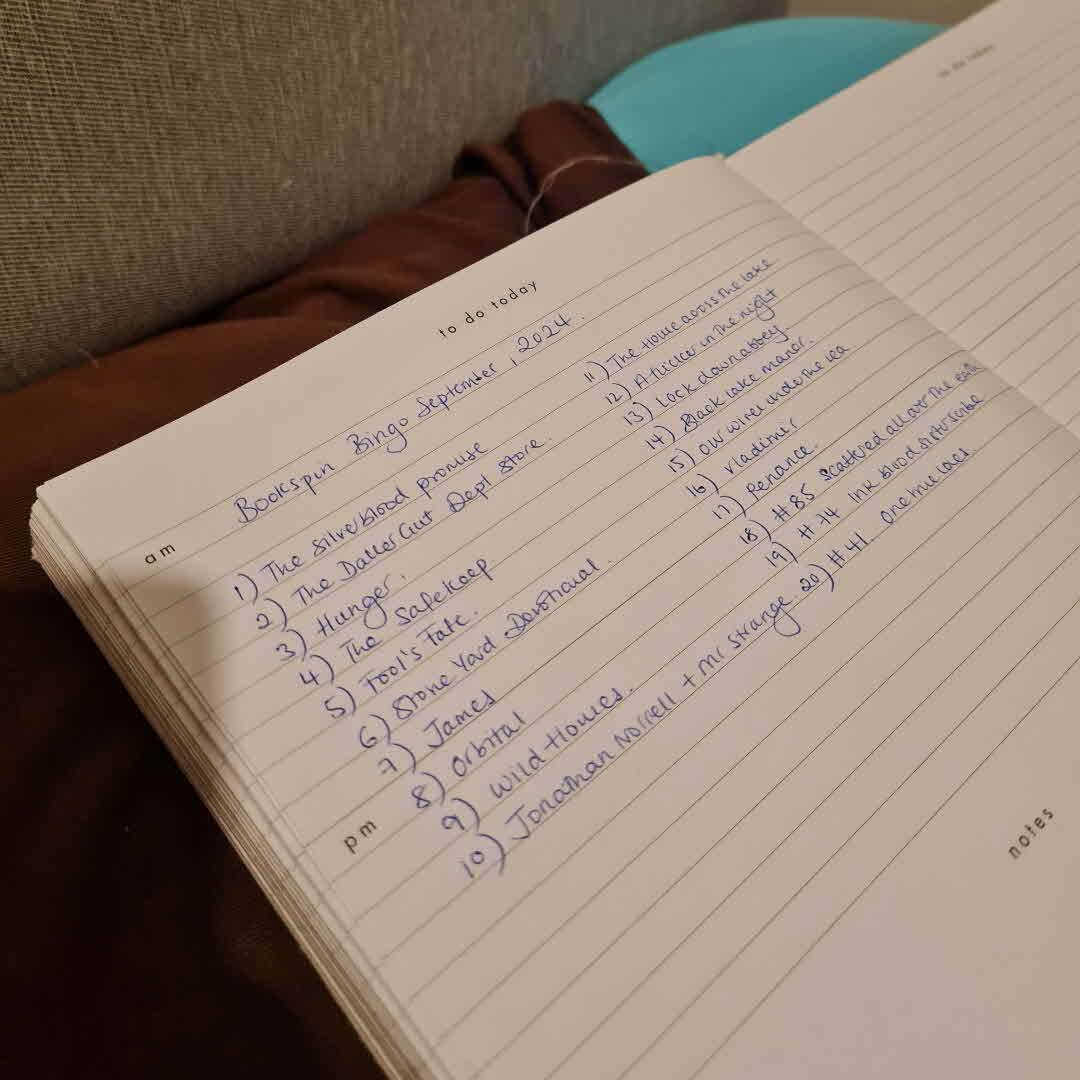 to do today
to do today
Bookspin Bingo September, 2024.
am
1) The Silverblood promise
2) The DallerGut Dept Store.
3) Hunger.
4) The Safekeep
5) Fool's Fate.
6) Stone Yard Devotional.
7) James
8) Orbital
pm
9) Wild Houses.
10) Jonathan Norrell + Mr Strange.
11) The House across the lake
12) A flicker in the night
13) Lock down abbey
14) Black lake manor.
15) Our wives under the sea
16) Vladimir
17) Penance.
18) #85 Scattered all over the earth
19) #74 Ink blood sister scribe
20) #41 One true loves.
notes